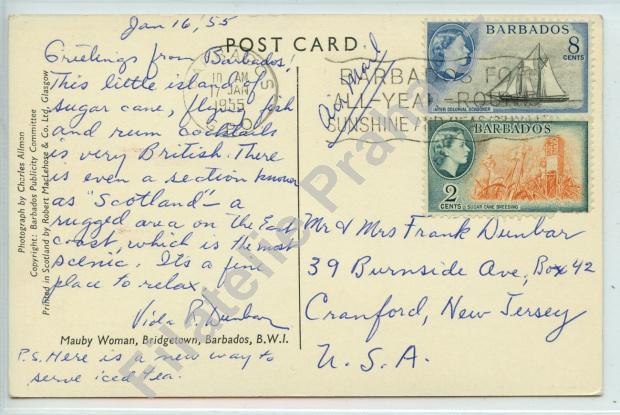 Jan 16, '55
POST CARD
Greetings from Barbados,
This little island of
sugar cane, flying fish
and rum cocktails
is very British. There
is even a section known
as "Scotland" - a
rugged area on the East
coast, which is the most
scenic. It's a fine
place to relax.
Vida P. Dunbar
Mauby Woman, Bridgetown, Barbados, B.W.I.
P.S. Here is a new way to
serve iced tea.
Photograph by Charles Allmon
Copyright: Barbados Publicity Committee
Printed in Scotland by Robert MacLehose & Co. Ltd., Glasgow
10 AM
17 JAN
1955
G.P.O.
Air Mail
BARBADOS FOR
ALL-YEAR-ROUND
SUNSHINE AND
BARBADOS
8
CENTS
INTER COLONIAL SCHOONER
BARBADOS
2
CENTS
SUGAR CANE BREEDING
Mr & Mrs Frank Dunbar
39 Burnside Ave, Box 42
Cranford, New Jersey
U.S.A.